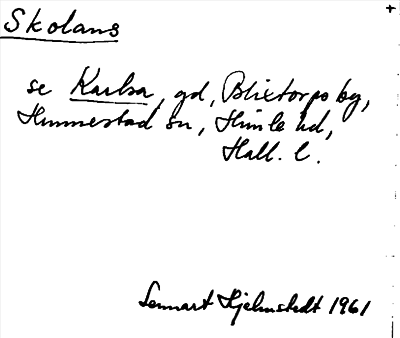 Skolans
se Karlsa, gd, Blixtorps by,
Himmestad sn, Himle hd,
Hall. l.
Lennart Hjelmstedt 1961